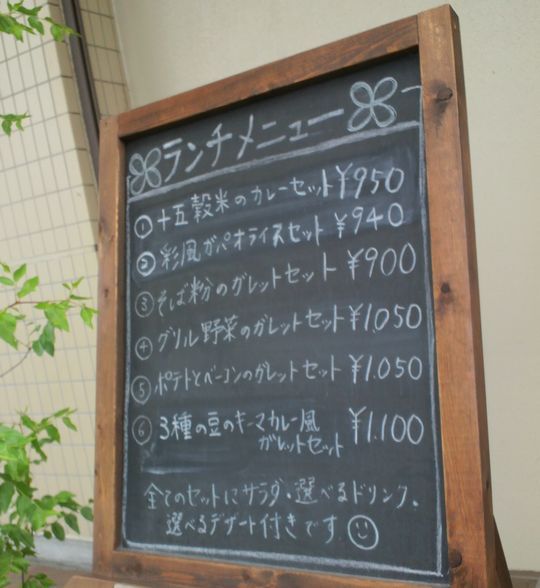 ランチメニュー
① 十五穀米のカレーセット ¥950
② 彩風ガパオライスセット ¥940
③ そば粉のガレットセット ¥900
④ グリル野菜のガレットセット ¥1.050
⑤ ポテトとベーコンのガレットセット ¥1.050
⑥ 3種の豆のキーマカレー風 ¥1.100
ガレットセット
全てのセットにサラダ・選べるドリンク、
選べるデザート付きです